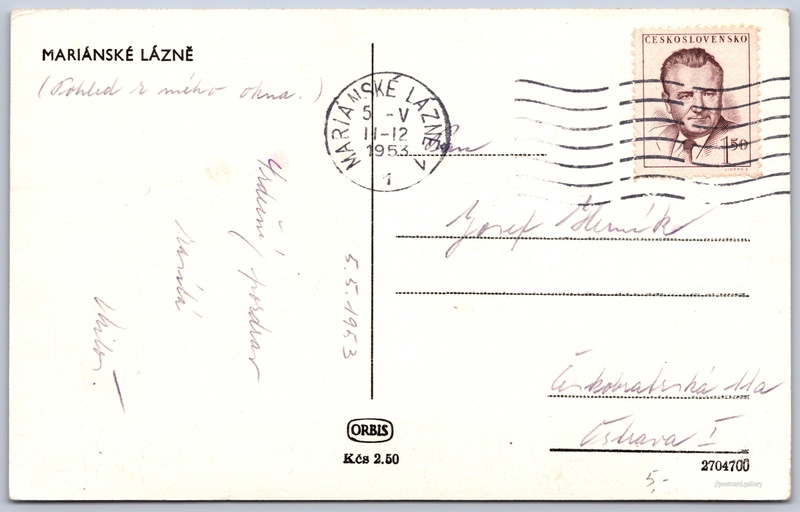 MARIÁNSKÉ LÁZNĚ
(Pohled z mého okna.)
Srdečný pozdrav
5.5.1953
MARIÁNSKÉ LÁZNĚ
5 -V
11-12
1953
1
ČESKOSLOVENSKO
1.50
Pan
Josef
Českobratrská 11a
Ostrava I
ORBIS
Kčs 2.50
2704700
5.-